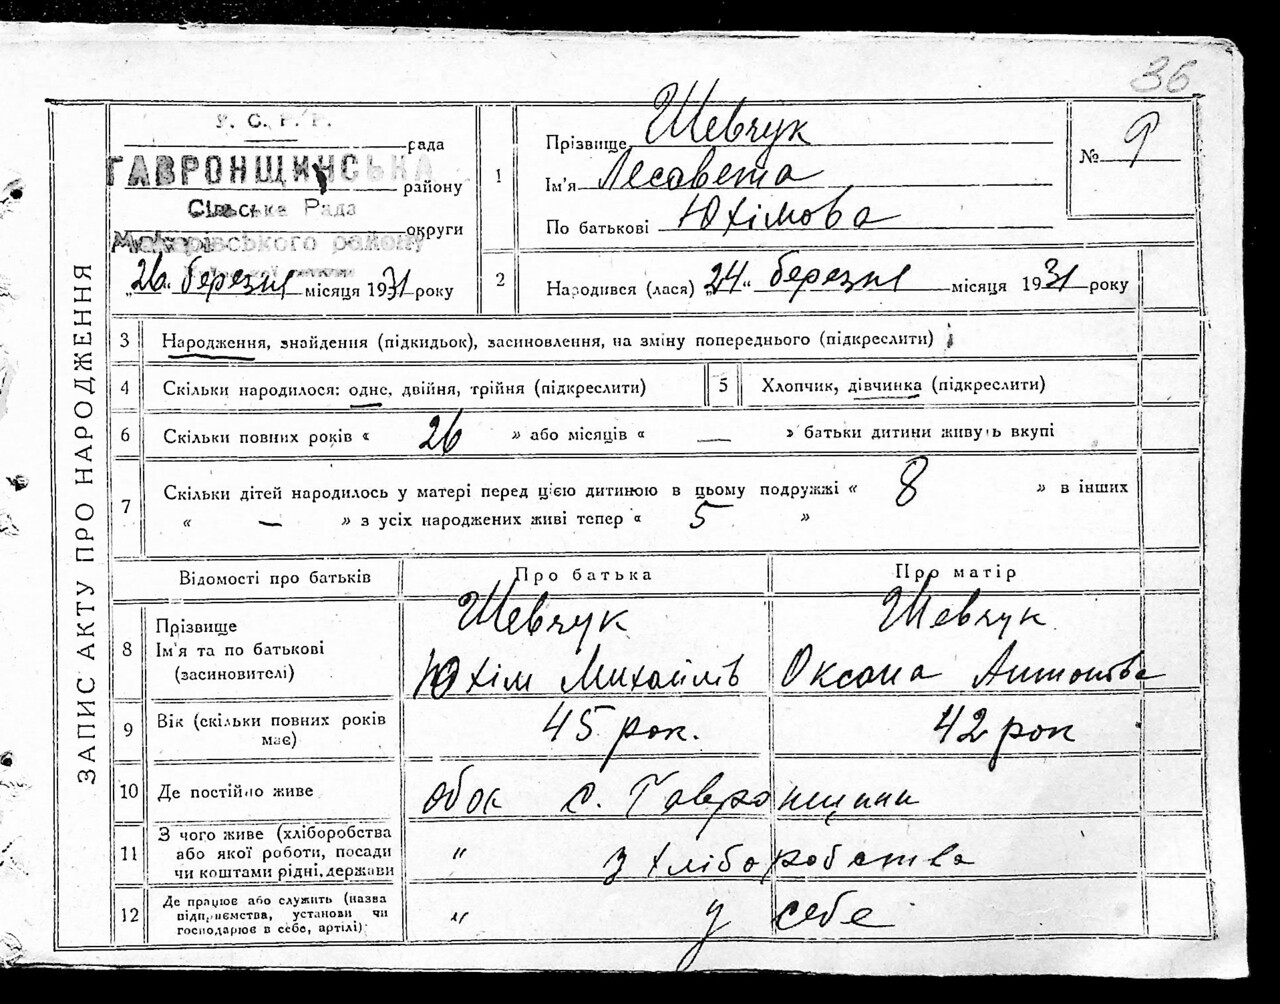 36
У. С. Р. Р.
рада
ГАВРОНЩИНСЬКА
району
Сільська Рада
округи
Макарівського району
„26“ березня місяця 1931 року
1
Прізвище Шевчук
Ім'я Лесавета
По батькові Юхімова
№ 9
2
Народився (лася) „24“ березня місяця 1931 року
ЗАПИС АКТУ ПРО НАРОДЖЕННЯ
3 Народження, знайдення (підкидьок), засиновлення, на зміну попереднього (підкреслити)
4 Скільки народилося: одне, двійня, трійня (підкреслити)
5 Хлопчик, дівчинка (підкреслити)
6 Скільки повних років « 26 » або місяців « — » батьки дитини живуть вкупі
7 Скільки дітей народилось у матері перед цією дитиною в цьому подружжі « 8 » в інших
« — » з усіх народжених живі тепер « 5 »
Відомості про батьків Про батька Про матір
8 Прізвище Шевчук Шевчук
Ім'я та по батькові Юхім Михайлів Оксана Антонова
(засиновителі)
9 Вік (скільки повних років 45 рок. 42 рок
має)
10 Де постійно живе обок с. Гавронщини
11 З чого живе (хліборобства
або якої роботи, посади " з хліборобства
чи коштами рідні, держави
12 Де працює або служить (назва
підприємства, установи чи " у себе
господарює в себе, артілі)